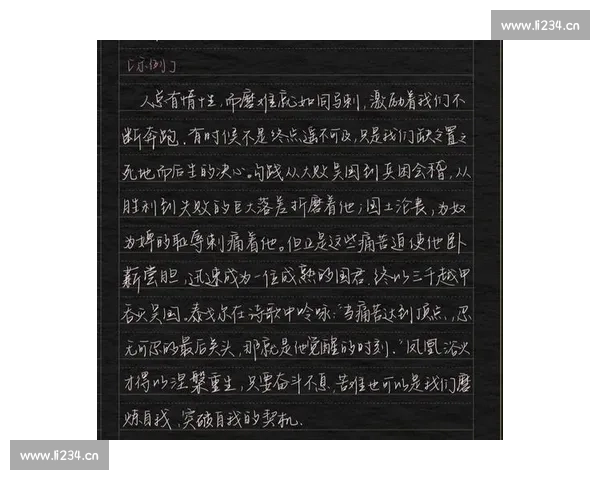 www.li234.cn
「示例」
人总有惰性,而磨难就如同马刺,激励着我们不
断奔跑。有时候不是终点遥不可及,只是我们缺乏置之
死地而后生的决心。勾践从大败吴国到兵困会稽,从
胜利到失败的巨大落差折磨着他;国土沦丧,为奴
为婢的耻辱刺痛着他。但正是这些痛苦迫使他卧
薪尝胆,迅速成为一位成熟的国君,终以三千越甲
吞灭吴国。泰戈尔在诗歌中吟咏:“当痛苦达到顶点,忍
无可忍的最后关头,那就是他觉醒的时刻。”凤凰浴火
才得以涅槃重生,只要奋斗不息,苦难也可以是我们磨
炼自我、突破自我的契机.
www.li234.cn